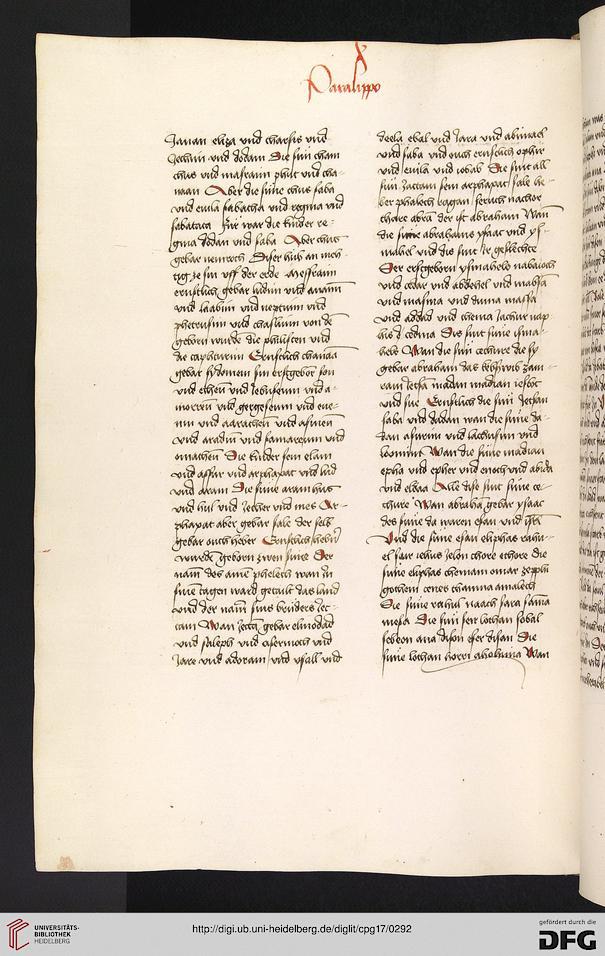 Paralippo
Janan eliza vnd tharsis vnd
Jechim vnd dodam Die sun cham
chus vnd mesraim phut vnd cha-
naan Aber die sune chus saba
vnd euila sabatha vnd regma vnd
sabataca Fur war die kinder re-
gma dodan vnd saba Aber chus
gebar nemroch Diser hub an mech-
tig ze sin vff der erde Messraim
ernstlich gebar ludim vnd anamī
vnd laabim vnd neptuim vnd
phetrusim vnd chasluim von dē
geborn wurde die philisten vnd
die capthurim Ernstlich chanaā
gebar sydonem sin erstgebor son
vnd etheū vnd Jebuseum vnd a-
morreū vnd gergeseum vnd eue-
um vnd aaracheū vnd asineū
vnd aradiū vnd samareum vnd
emacheū Die kinder sem elam
vnd assur vnd arphaxat vnd lud
vnd aram Die sune aram hus
vnd hul vnd Jecher vnd mes Ar-
phaxat aber gebar sale der selb
gebar ouch heber Ernstlich heber
wurde geborn zwen sune Der
nam des ainē phelech wan ȳn
sine tagen ward getailt das land
vnd der nam sins bruders Jec-
tan Wan Jectā gebar elmodad
vnd saleph vnd asermoch vnd
Jare vnd adoram vnd vsall vnd
deela ebal vnd Jara vnd abimael
vnd saba vnd ouch ernstlich ophir
vnd euila vnd iobab Die sint all
sun Jactam sem arphaxat sale he-
ber phalech ragan seruch nachor
thare abrā der ist abraham Wan
die sune abrahams ysaac vnd ys-
mahel vnd dis sint ir geslechte
Der erstgeborn ysmahels nabaioth
vnd cedar vnd abdehel vnd mabsā
vnd masma vnd duma massa
vnd addad vnd thema Jachur nap
his cedma Dis sint sune isma-
hels Wan die sun cethure die sy
gebar abraham das kebswib zam-
ram Jecsā madan madian iesboc
vnd sue Ernstlich die sun Jecsan
saba vnd dadan wan die sune da-
dan assurim vnd lathusim vnd
loomim Wan die sune madian
epha vnd epher vnd enoch vnd abida
vnd eldaa Alle dise sint sune ce-
thure Wan abrahā gebar ysaac
des sune da waren esau vnd isrl
Vnd die sune esau eliphas rahu-
el sair ieus Jelon chore thore die
sune eliphas theman omar zepphi
gothem cenes thamna amalech
Die sune rahul naath sara sāma
mesa Die sun seir lothan sobal
sebeon ana dison eser disan Die
sune lothan horri ahohima Wan
UNIVERSITÄTS-
BIBLIOTHEK
HEIDELBERG
http://digi.ub.uni-heidelberg.de/diglit/cpg17/0292
gefördert durch die
DFG